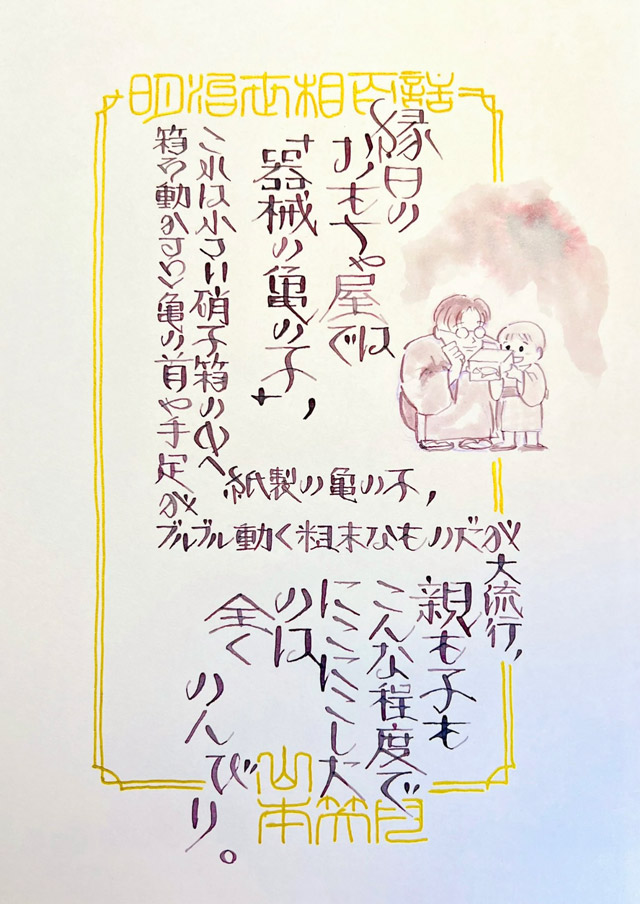 明治世相百話
縁日の
おもちゃ屋では
「器械の亀の子」、
これは小さい硝子箱の中へ
紙製の亀の子、
箱を動かすと亀の首や手足が
ブルブル動く粗末なものだが
大流行、
親も子も
こんな程度で
にこにこした
のは
全く
のんびり。
山本笑月